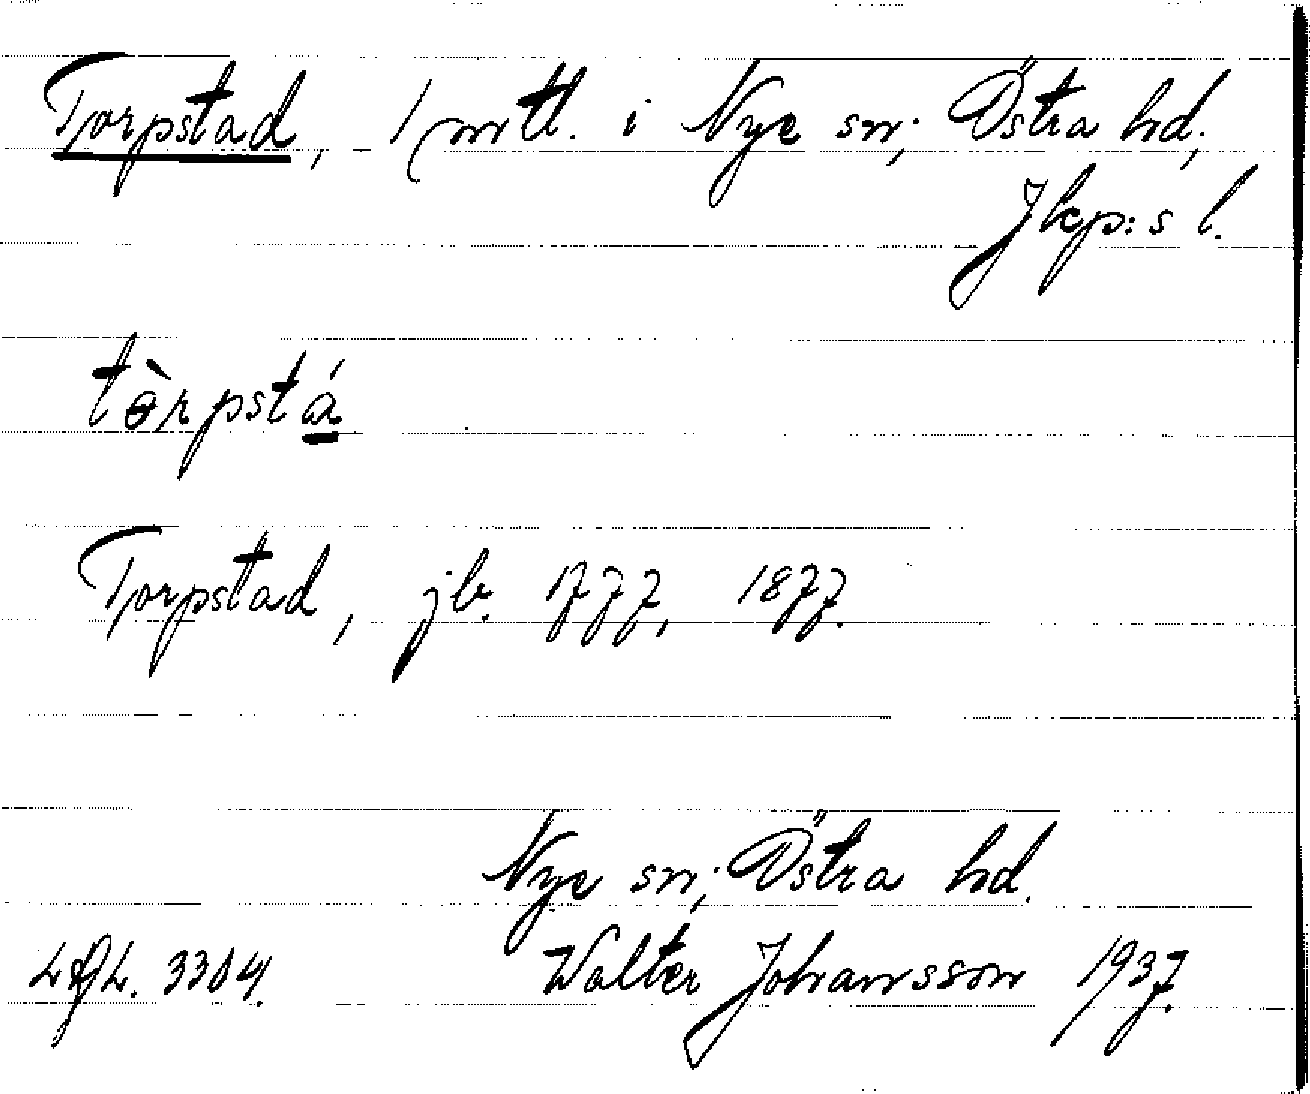 Torpstad, 1 mtl. i Nye sn; Östra hd,
Jkp:s l.
tɵ̀rpstá
Torpstad, jb. 1777, 1877.
Nye sn; Östra hd.
3304. Walter Johansson 1937.